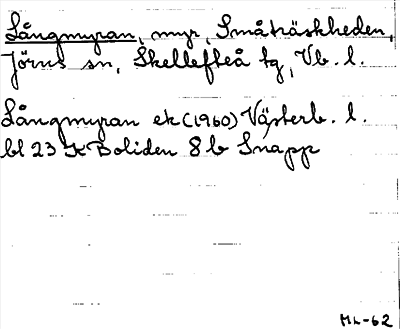 Långmyran, myr, Småträskheden,
Jörns sn, Skellefteå tg, Vb. l.
Långmyran ek (1960) Västerb. l.
bl 23 K Boliden 8 b Snapp
ML-62